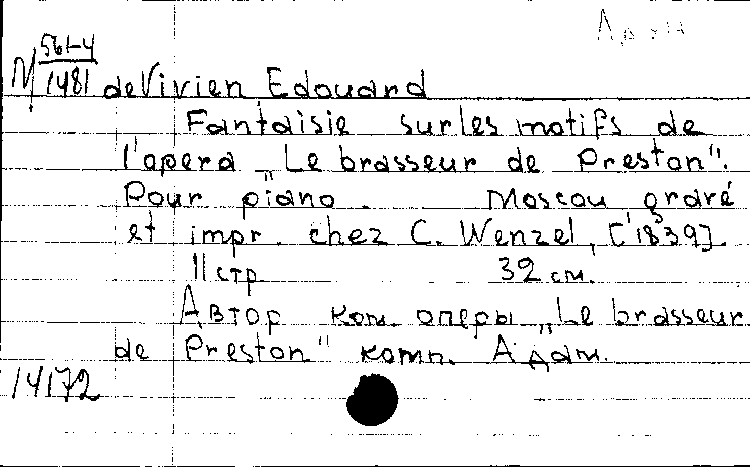 М 561-4
1481
de Vivien Edouard
Fantaisie sur les motifs de
l'opera „Le brasseur de Preston".
Pour piano. Moscou gravé
et impr. chez C. Wenzel, [1839].
11 стр 32 см.
Автор ком. оперы „Le brasseur
de Preston" комп. Адам.
14172